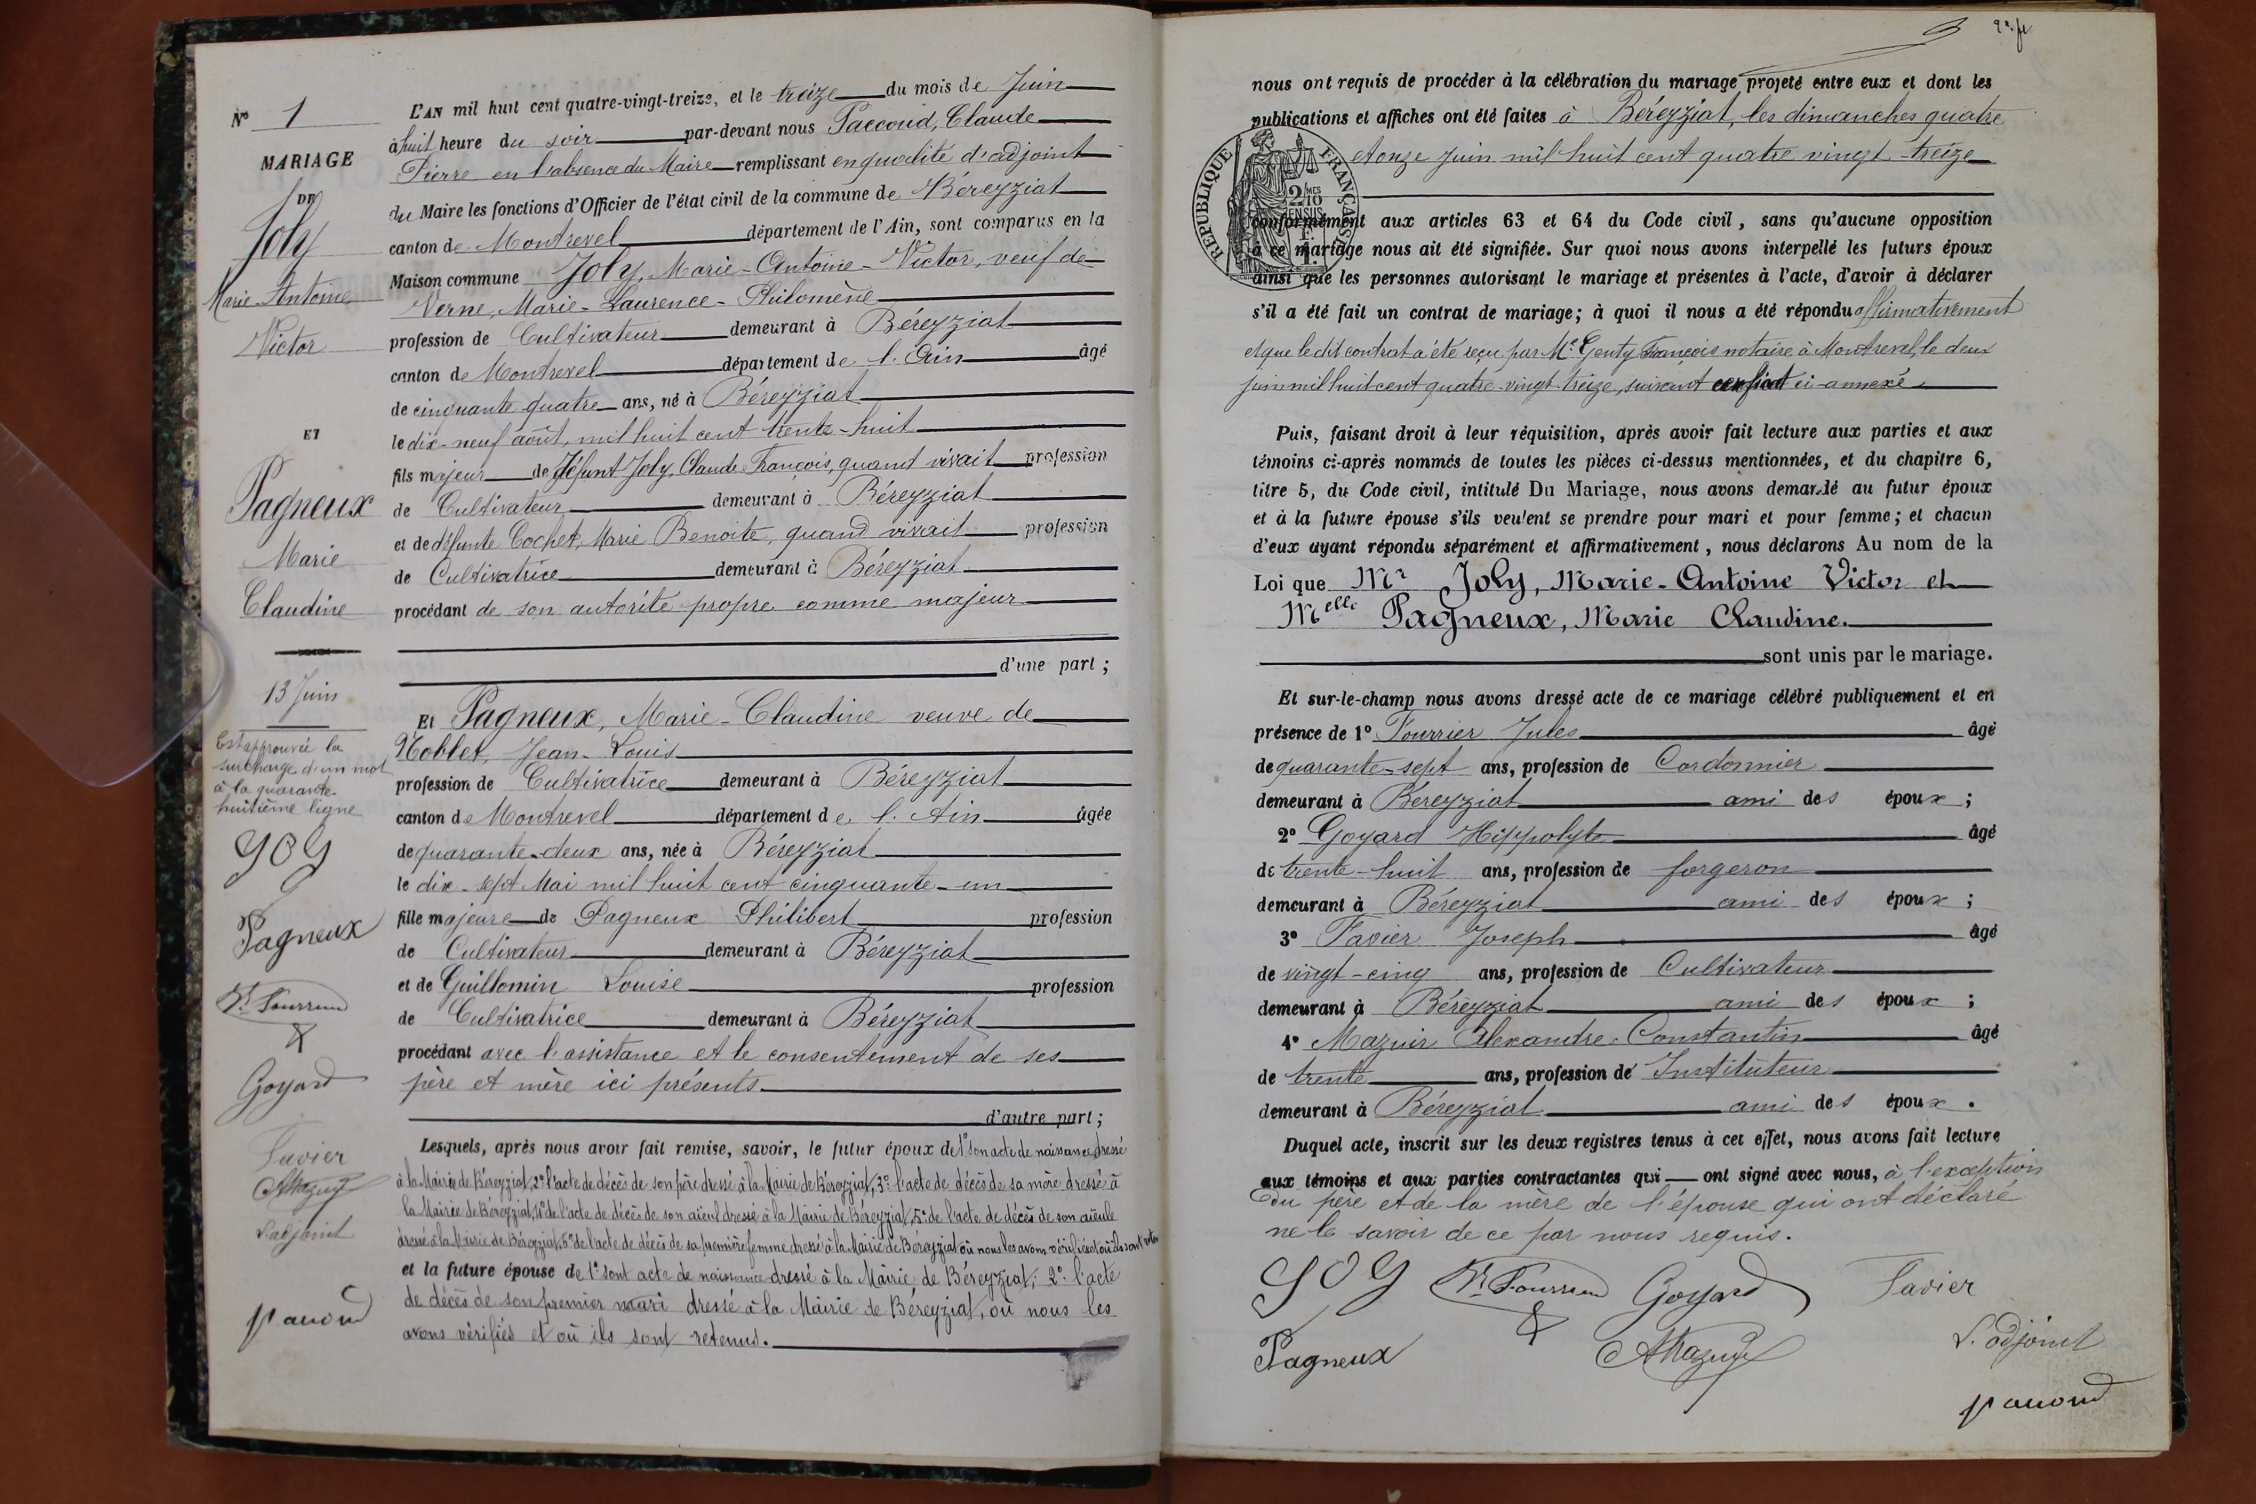 Nº 1
MARIAGE
DE
Joly
Marie-Antoine
Victor
ET
Pagneux
Marie
Claudine
13 Juin
Est approuvée la
surcharge d'un mot
à la quarante-
huitième ligne
JOLY
Pagneux
Goyard
Favier
L'adjoint
Paccoud
L'AN mil huit cent quatre-vingt-treize, et le treize du mois de Juin
à huit heure du soir par-devant nous Paccoud, Claude
Pierre en l'absence du Maire remplissant en qualité d'adjoint
du Maire les fonctions d'Officier de l'état civil de la commune de Béreyziat
canton de Montrevel département de l'Ain, sont comparus en la
Maison commune Joly, Marie-Antoine-Victor, veuf de
Verne, Marie-Laurence-Philomène
profession de Cultivateur demeurant à Béreyziat
canton de Montrevel département de l'Ain âgé
de cinquante quatre ans, né à Béreyziat
le dix-neuf août, mil huit cent trente-huit
fils majeur de défunt Joly, Claude François, quand vivait profession
de Cultivateur demeurant à Béreyziat
et de défunte Cochet, Marie Benoite, quand vivait profession
de Cultivatrice demeurant à Béreyziat
procédant de son autorité propre comme majeur
d'une part ;
Et Pagneux, Marie-Claudine veuve de
Noblet, Jean-Louis
profession de Cultivatrice demeurant à Béreyziat
canton de Montrevel département de l'Ain âgée
de quarante-deux ans, née à Béreyziat
le dix-sept Mai mil huit cent cinquante-un
fille majeure de Pagneux Philibert profession
de Cultivateur demeurant à Béreyziat
et de Guillomin Louise profession
de Cultivatrice demeurant à Béreyziat
procédant avec l'assistance et le consentement de ses
père et mère ici présents
d'autre part ;
Lesquels, après nous avoir fait remise, savoir, le futur époux de 1º son acte de naissance dressé
à la Mairie de Béreyziat, 2º l'acte de décès de son père dressé à la Mairie de Béreyziat, 3º l'acte de décès de sa mère dressé à
la Mairie de Béreyziat, 4º de l'acte de décès de son aïeul dressé à la Mairie de Béreyziat, 5º de l'acte de décès de son aïeule
dressé à la Mairie de Béreyziat, 5º de l'acte de décès de sa première femme dressé à la Mairie de Béreyziat où nous les avons vérifiés et où ils sont
et la future épouse de 1º sont acte de naissance dressé à la Mairie de Béreyziat; 2º l'acte
de décès de son premier mari dressé à la Mairie de Béreyziat, où nous les
avons vérifiés et où ils sont retenus.
nous ont requis de procéder à la célébration du mariage projeté entre eux et dont les
publications et affiches ont été faites à Béreyziat, les dimanches quatre
et onze juin mil huit cent quatre vingt-treize
REPUBLIQUE FRANÇAISE
conformément aux articles 63 et 64 du Code civil, sans qu'aucune opposition
à ce mariage nous ait été signifiée. Sur quoi nous avons interpellé les futurs époux
ainsi que les personnes autorisant le mariage et présentes à l'acte, d'avoir à déclarer
s'il a été fait un contrat de mariage; à quoi il nous a été répondu affirmativement
et que le dit contrat a été reçu par Me Genty François notaire à Montrevel, le deux
juin mil huit cent quatre-vingt-treize, suivant certificat ci-annexé.
Puis, faisant droit à leur réquisition, après avoir fait lecture aux parties et aux
témoins ci-après nommés de toutes les pièces ci-dessus mentionnées, et du chapitre 6,
titre 5, du Code civil, intitulé Du Mariage, nous avons demandé au futur époux
et à la future épouse s'ils veulent se prendre pour mari et pour femme; et chacun
d'eux ayant répondu séparément et affirmativement, nous déclarons Au nom de la
Loi que Mr Joly, Marie-Antoine Victor et
Melle Pagneux, Marie Claudine.
sont unis par le mariage.
Et sur-le-champ nous avons dressé acte de ce mariage célébré publiquement et en
présence de 1º Fourrier Jules âgé
de quarante-sept ans, profession de Cordonnier
demeurant à Béreyziat ami des époux ;
2º Goyard Hippolyte âgé
de trente-huit ans, profession de forgeron
demeurant à Béreyziat ami des époux ;
3º Favier Joseph âgé
de vingt-cinq ans, profession de Cultivateur
demeurant à Béreyziat ami des époux ;
4º Mazuir Alexandre-Constantin âgé
de trente ans, profession de Instituteur
demeurant à Béreyziat ami des époux.
Duquel acte, inscrit sur les deux registres tenus à cet effet, nous avons fait lecture
aux témoins et aux parties contractantes qui ont signé avec nous, à l'exception
du père et de la mère de l'épouse qui ont déclaré
ne le savoir de ce par nous requis.
JOLY Goyard Favier
Pagneux AMazuir L'adjoint
Paccoud